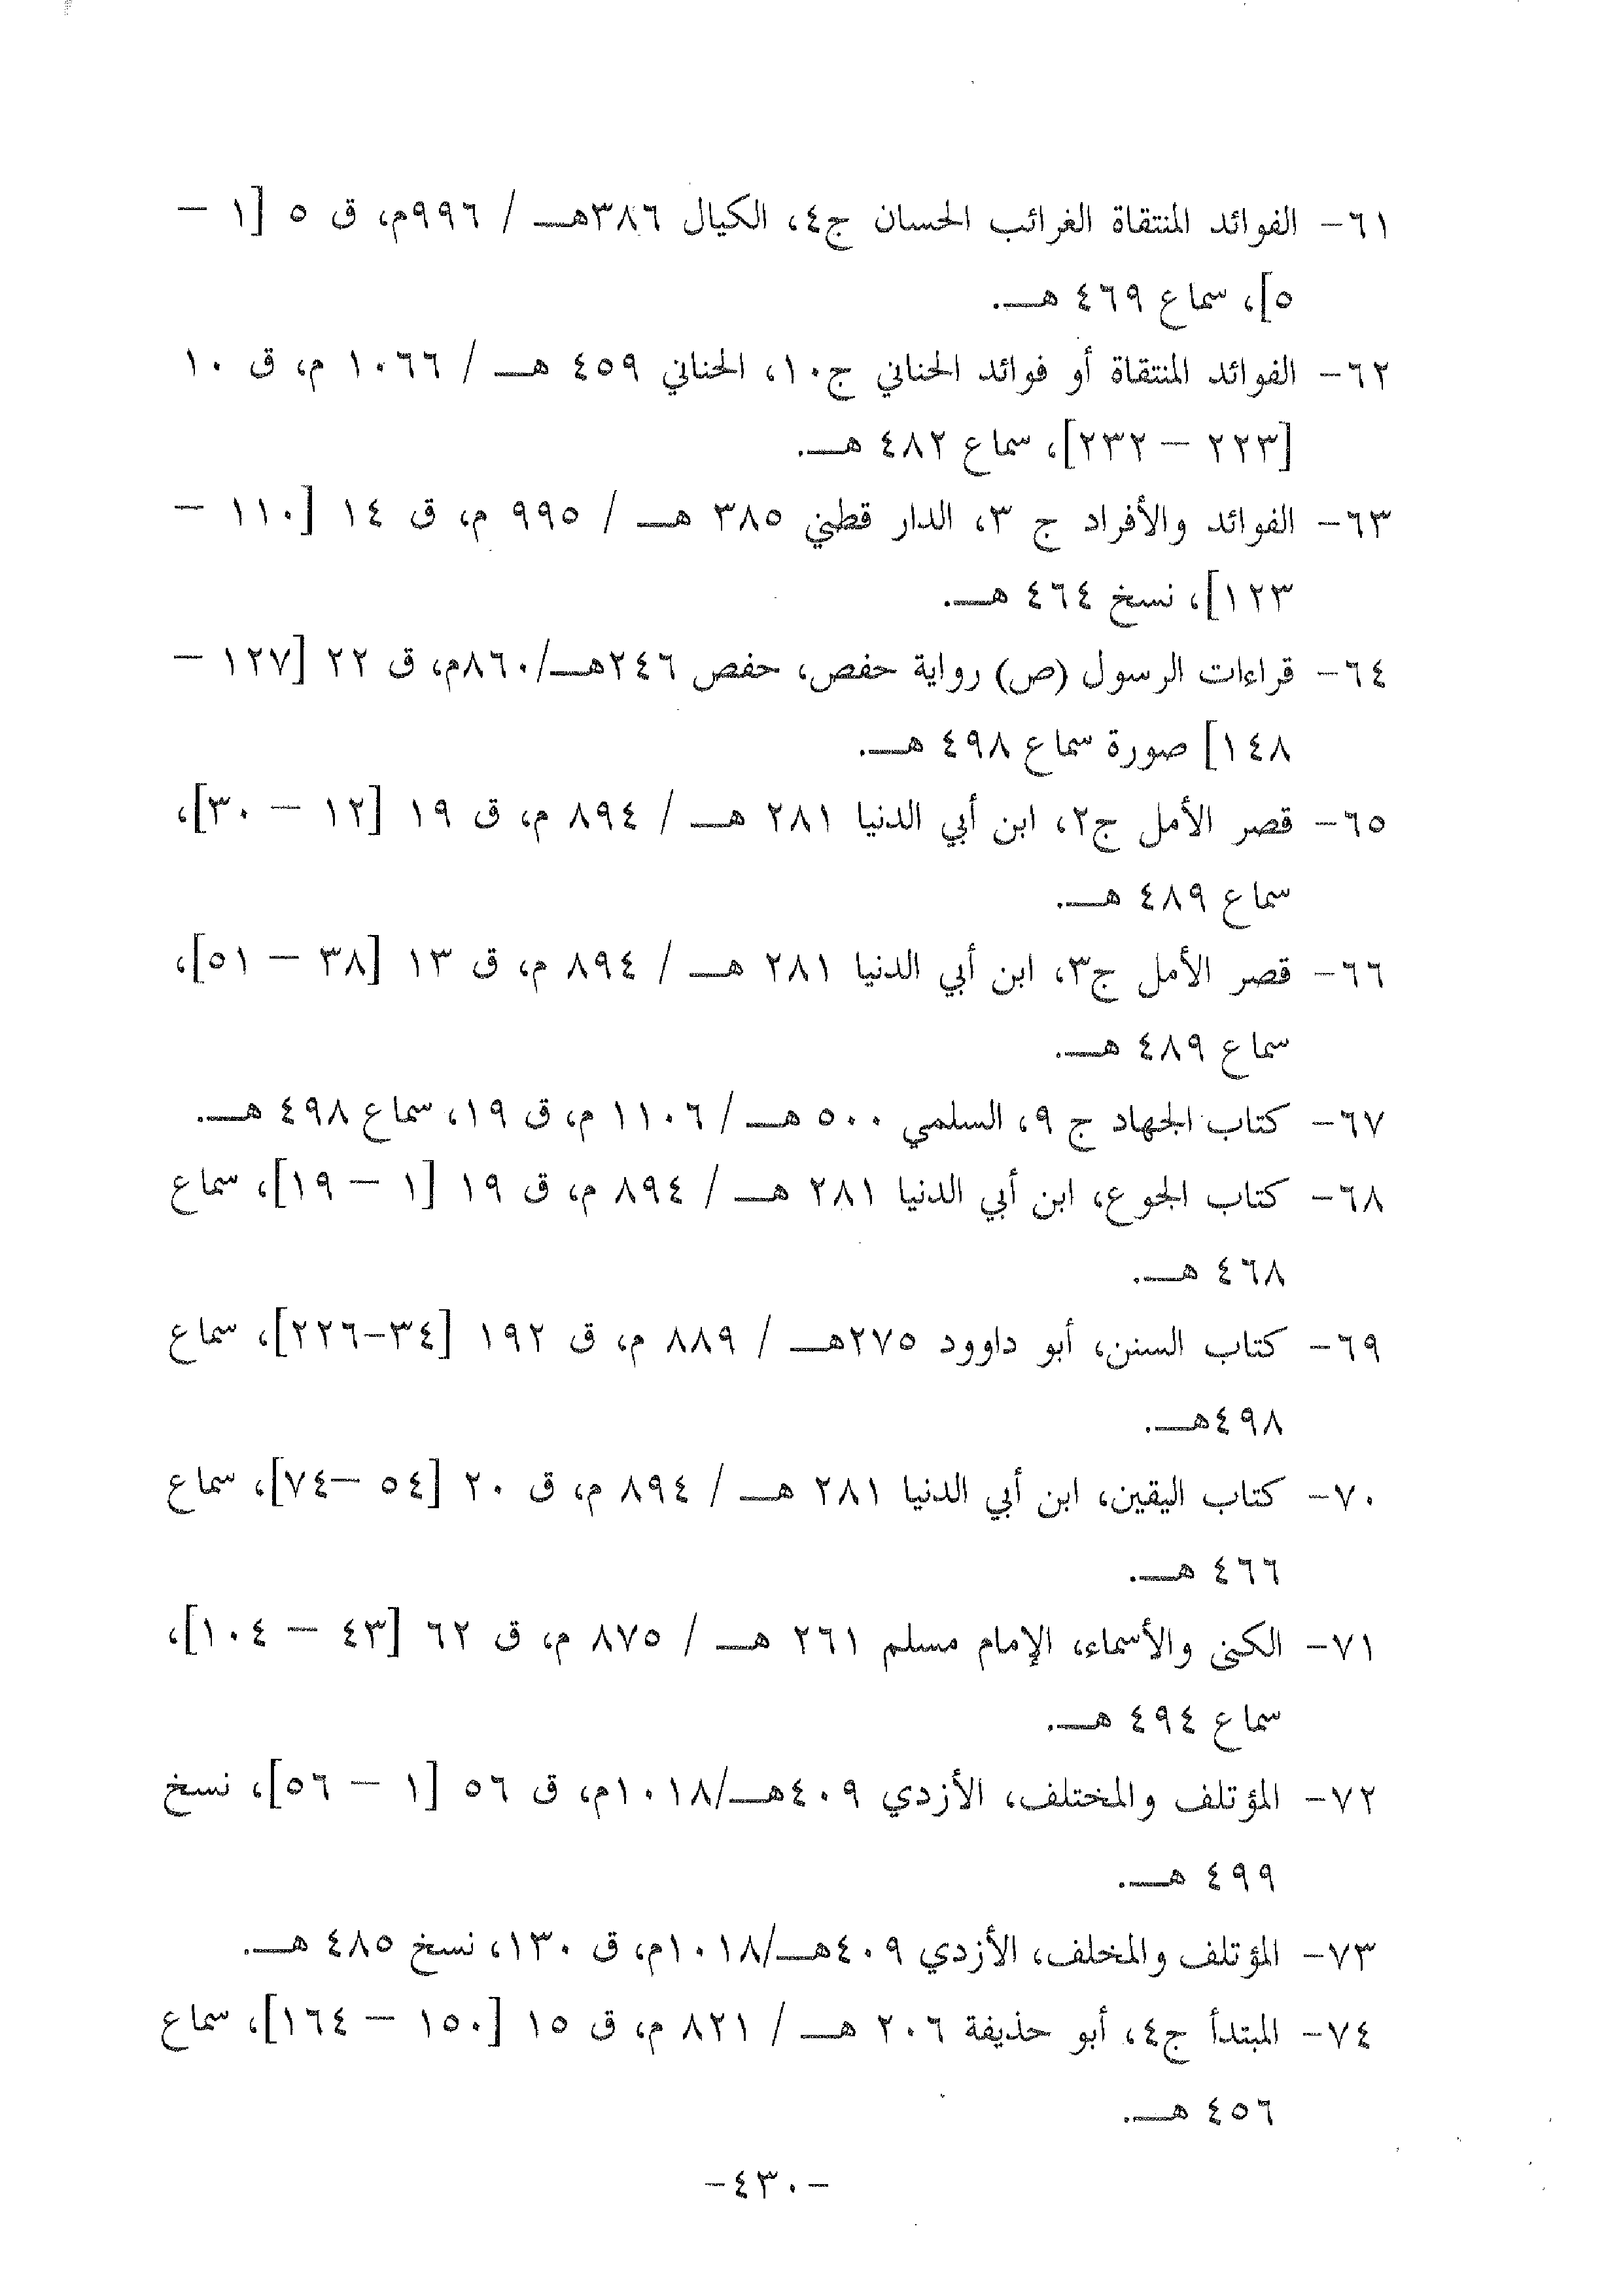 ٦١- الفوائد المنتقاة الغرائب الحسان ج٤، الكيال ٣٨٦هـ / ٩٩٦م، ق ٥ [١ –
٥]، سماع ٤٦٩ هـ.
٦٢- الفوائد المنتقاة أو فوائد الحنائي ج١٠، الحنائي ٤٥٩ هـ / ١٠٦٦ م، ق ١٠
[٢٢٣ – ٢٣٢]، سماع ٤٨٢ هـ.
٦٣- الفوائد والأفراد ج ٣، الدار قطني ٣٨٥ هـ / ٩٩٥ م، ق ١٤ [١١٠ –
١٢٣]، نسخ ٤٦٤ هـ.
٦٤- قراءات الرسول (ص) رواية حفص، حفص ٢٤٦هـ/٨٦٠م، ق ٢٢ [١٢٧ –
١٤٨] صورة سماع ٤٩٨ هـ.
٦٥- قصر الأمل ج٢، ابن أبي الدنيا ٢٨١ هـ / ٨٩٤ م، ق ١٩ [١٢ – ٣٠]،
سماع ٤٨٩ هـ.
٦٦- قصر الأمل ج٣، ابن أبي الدنيا ٢٨١ هـ / ٨٩٤ م، ق ١٣ [٣٨ – ٥١]،
سماع ٤٨٩ هـ.
٦٧- كتاب الجهاد ج ٩، السلمي ٥٠٠ هـ / ١١٠٦ م، ق ١٩، سماع ٤٩٨ هـ.
٦٨- كتاب الجوع، ابن أبي الدنيا ٢٨١ هـ / ٨٩٤ م، ق ١٩ [١ – ١٩]، سماع
٤٦٨ هـ.
٦٩- كتاب السنن، أبو داوود ٢٧٥هـ / ٨٨٩ م، ق ١٩٢ [٣٤-٢٢٦]، سماع
٤٩٨هـ.
٧٠- كتاب اليقين، ابن أبي الدنيا ٢٨١ هـ / ٨٩٤ م، ق ٢٠ [٥٤ –٧٤]، سماع
٤٦٦ هـ.
٧١- الكنى والأسماء، الإمام مسلم ٢٦١ هـ / ٨٧٥ م، ق ٦٢ [٤٣ – ١٠٤]،
سماع ٤٩٤ هـ.
٧٢- المؤتلف والمختلف، الأزدي ٤٠٩هـ/١٠١٨م، ق ٥٦ [١ – ٥٦]، نسخ
٤٩٩ هـ.
٧٣- المؤتلف والمخلف، الأزدي ٤٠٩هـ/١٠١٨م، ق ١٣٠، نسخ ٤٨٥ هـ.
٧٤- المبتدأ ج٤، أبو حذيفة ٢٠٦ هـ / ٨٢١ م، ق ١٥ [١٥٠ – ١٦٤]، سماع
٤٥٦ هـ.
-٤٣٠-